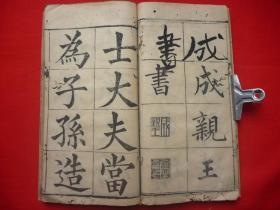 成成親王
書書
士大夫當
為子孫造